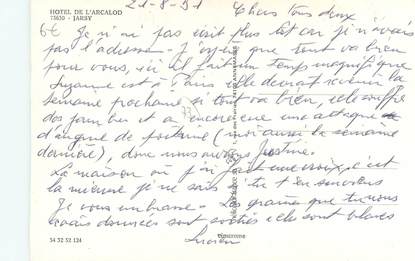 HOTEL DE L'ARCALOD
73630 - JARSY
21-8-91
Chers tous deux
Je n'ai pas écrit plus tôt car je n'avais
pas l'adresse. J'espère que tout va bien
pour vous, ici il fait un temps magnifique
Suzanne est à Paris elle devrait revenir la
semaine prochaine si tout va bien, elle souffre
des jambes et a encore eu une attaque
d'angine de poitrine (moi aussi la semaine
dernière), donc nous avons
La maison où j'ai fait une croix, c'est
la mienne je ne sais si tu t'en souviens
Je vous embrasse. Les graines que tu nous
avais données sont sorties elles sont blanches
Lucien
54 52 52 124